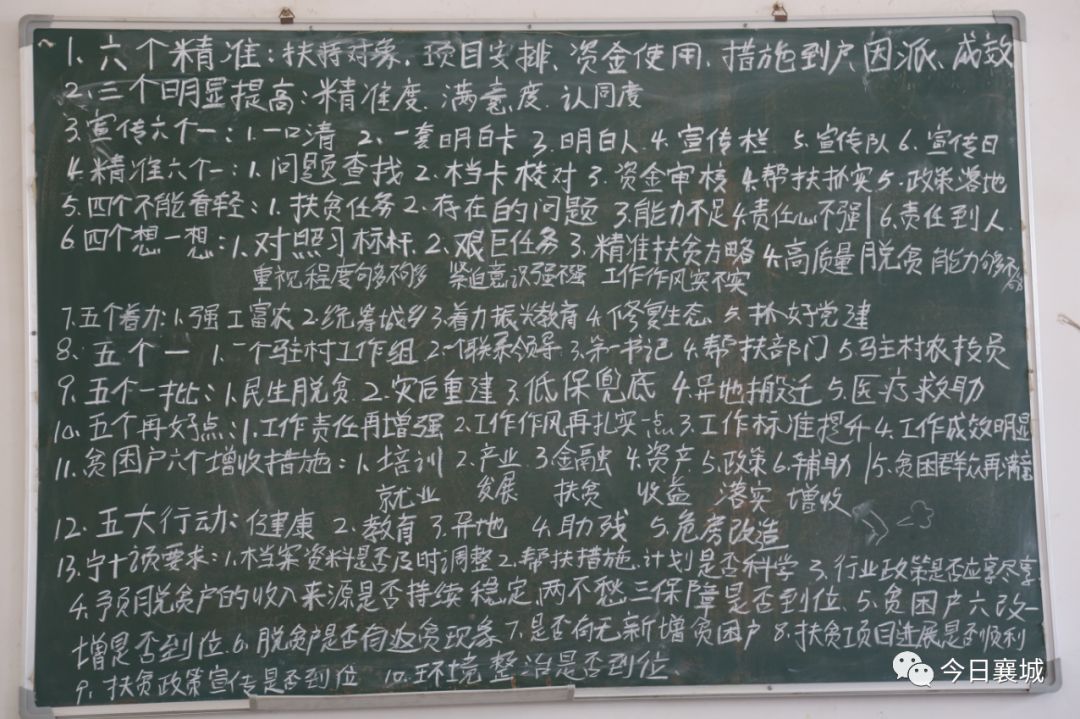 1、六个精准：扶持对象、项目安排、资金使用、措施到户、因派、成效
2、三个明显提高：精准度、满意度、认同度
3、宣传六个一：1、一口清 2、一套明白卡 3、明白人 4、宣传栏 5、宣传队 6、宣传日
4、精准六个一：1、问题查找 2、档卡校对 3、资金审核 4、帮扶抓实 5、政策落地
5、四个不能看轻：1、扶贫任务 2、存在的问题 3、能力不足 4、责任心不强 | 6、责任到人
6、四个想一想：1、对照习标杆、2、艰巨任务 3、精准扶贫方略 4、高质量脱贫能力够不够
重视程度够不够 紧迫意识强不强 工作作风实不实
7、五个着力：1、强工富农 2、统筹城乡 3、着力振兴教育 4、修复生态、5、抓好党建
8、五个一 1、一个驻村工作组 2、一个联系领导 3、第一书记 4、帮扶部门 5、驻村农技员
9、五个一批：1、民生脱贫 2、灾后重建 3、低保兜底 4、异地搬迁 5、医疗救助
10、五个再好点：1、工作责任再增强 2、工作作风再扎实一点 3、工作标准提升 4、工作成效明显
11、贫困户六个增收措施：1、培训 2、产业 3、金融 4、资产 5、政策 6、辅助 | 5、贫困群众再满意
就业 发展 扶贫 收益 落实 增收
12、五大行动：健康 2、教育 3、异地 4、助残 5、危房改造
13、十项要求：1、档案资料是否及时调整 2、帮扶措施、计划是否科学 3、行业政策是否应享尽享
4、预脱贫户的收入来源是否持续稳定、两不愁三保障是否到位、5、贫困户六改一
增是否到位、6、脱贫户是否有返贫现象 7、是否有无新增贫困户 8、扶贫项目进展是否顺利
9、扶贫政策宣传是否到位 10、环境整治是否到位、
今日襄城